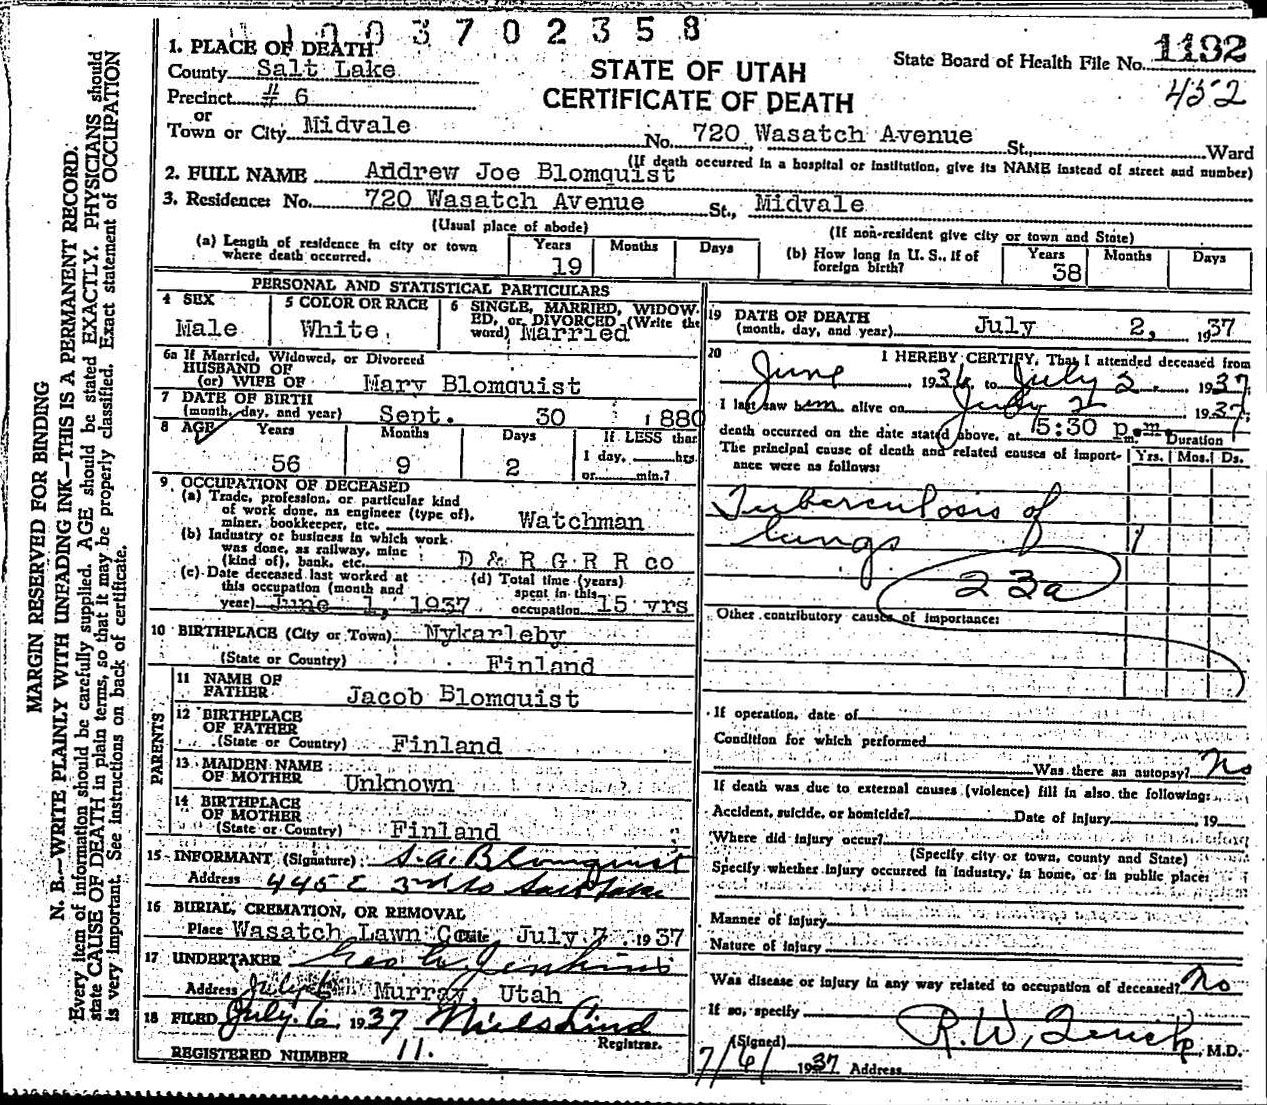 1003702358
1. PLACE OF DEATH
County Salt Lake
Precinct # 6
or
Town or City Midvale
STATE OF UTAH
CERTIFICATE OF DEATH
State Board of Health File No. 1192
452
No. 720 Wasatch Avenue St., Ward
(If death occurred in a hospital or institution, give its NAME instead of street and number)
2. FULL NAME Andrew Joe Blomquist
3. Residence: No. 720 Wasatch Avenue St., Midvale
(Usual place of abode) (If non-resident give city or town and State)
(a) Length of residence in city or town where death occurred. Years 19 Months Days
(b) How long in U. S., if of foreign birth? Years 38 Months Days
PERSONAL AND STATISTICAL PARTICULARS
4 SEX Male
5 COLOR OR RACE White
6 SINGLE, MARRIED, WIDOWED, or DIVORCED (Write the word) Married
6a If Married, Widowed, or Divorced
HUSBAND OF
(or) WIFE OF Mary Blomquist
7 DATE OF BIRTH
(month, day, and year) Sept. 30 1880
8 AGE Years 56 Months 9 Days 2
If LESS than
1 day, hrs.
or min.?
9 OCCUPATION OF DECEASED
(a) Trade, profession, or particular kind
of work done, as engineer (type of),
miner, bookkeeper, etc. Watchman
(b) Industry or business in which work
was done, as railway, mine
(kind of), bank, etc. D & R G R R co
(c) Date deceased last worked at
this occupation (month and
year) June 1, 1937
(d) Total time (years)
spent in this
occupation 15 yrs
10 BIRTHPLACE (City or Town) Nykarleby
(State or Country) Finland
PARENTS
11 NAME OF
FATHER Jacob Blomquist
12 BIRTHPLACE
OF FATHER
(State or Country) Finland
13 MAIDEN NAME
OF MOTHER Unknown
14 BIRTHPLACE
OF MOTHER
(State or Country) Finland
15 INFORMANT (Signature) S.A. Blomquist
Address 445 E 3rd So Salt Lake
16 BURIAL, CREMATION, OR REMOVAL
Place Wasatch Lawn Date July 7 1937
17 UNDERTAKER Geo W. Jenkins
Address Murray, Utah
18 FILED July 6 1937 Niels Lind
Registrar.
REGISTERED NUMBER 11.
19 DATE OF DEATH
(month, day, and year) July 2, 1937
20 I HEREBY CERTIFY, That I attended deceased from
June 1936, to July 2, 1937
I last saw him alive on July 2 1937,
death occurred on the date stated above, at 5:30 p.m.
Duration
The principal cause of death and related causes of importance were as follows: Yrs. Mos. Ds.
Tuberculosis of
lungs 1
23a
Other contributory causes of importance:
If operation, date of
Condition for which performed
Was there an autopsy? No
If death was due to external causes (violence) fill in also the following:
Accident, suicide, or homicide? Date of injury 19
Where did injury occur?
(Specify city or town, county and State)
Specify whether injury occurred in industry, in home, or in public place:
Manner of injury
Nature of injury
Was disease or injury in any way related to occupation of deceased? No
If so, specify
(Signed) R.W. , M.D.
7/6/ 1937 Address
MARGIN RESERVED FOR BINDING
N. B.—WRITE PLAINLY WITH UNFADING INK—THIS IS A PERMANENT RECORD.
Every item of information should be carefully supplied. AGE should be stated EXACTLY. PHYSICIANS should
state CAUSE OF DEATH in plain terms, so that it may be properly classified. Exact statement of OCCUPATION
is very important. See instructions on back of certificate.